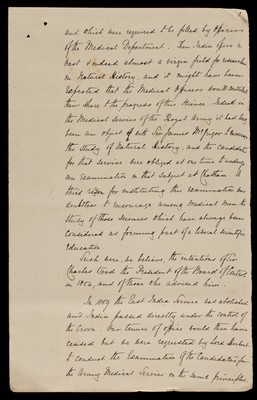 and which were required to be filled by officers
of the Medical Department. Then India offers a
vast & indeed almost a virgin field for research
in Natural History, and it might have been
expected that the Medical Officers would contribute
their share to the progress of this Science. Indeed in
the Medical Service of the Royal Army it had long
been an object of with Sir James McGrigor to encourage
the study of Natural History, and the Candidates
for that service were obliged at one time to undergo
an Examination in that subject at Chatham. A
third reason for instituting this examination was
doubtless to encourage among Medical men the
Study of those Sciences which have always been
considered as forming part of a liberal scientific
Education.
Such were, we believe, the intentions of Sir
Charles Wood the President of the Board of Control
in 1854, and of those who advised him.
In 1859 the East India Service was abolished
and India passed directly under the control of
the Crown. Our tenure of office would then have
ceased but we were requested by Lord Herbert
to conduct the Examination of the Candidates for
the Army Medical Service on the same principles,